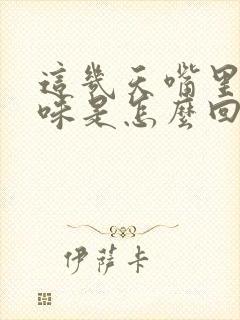 這幾天嘴里
味是怎麼回
伊薩卡